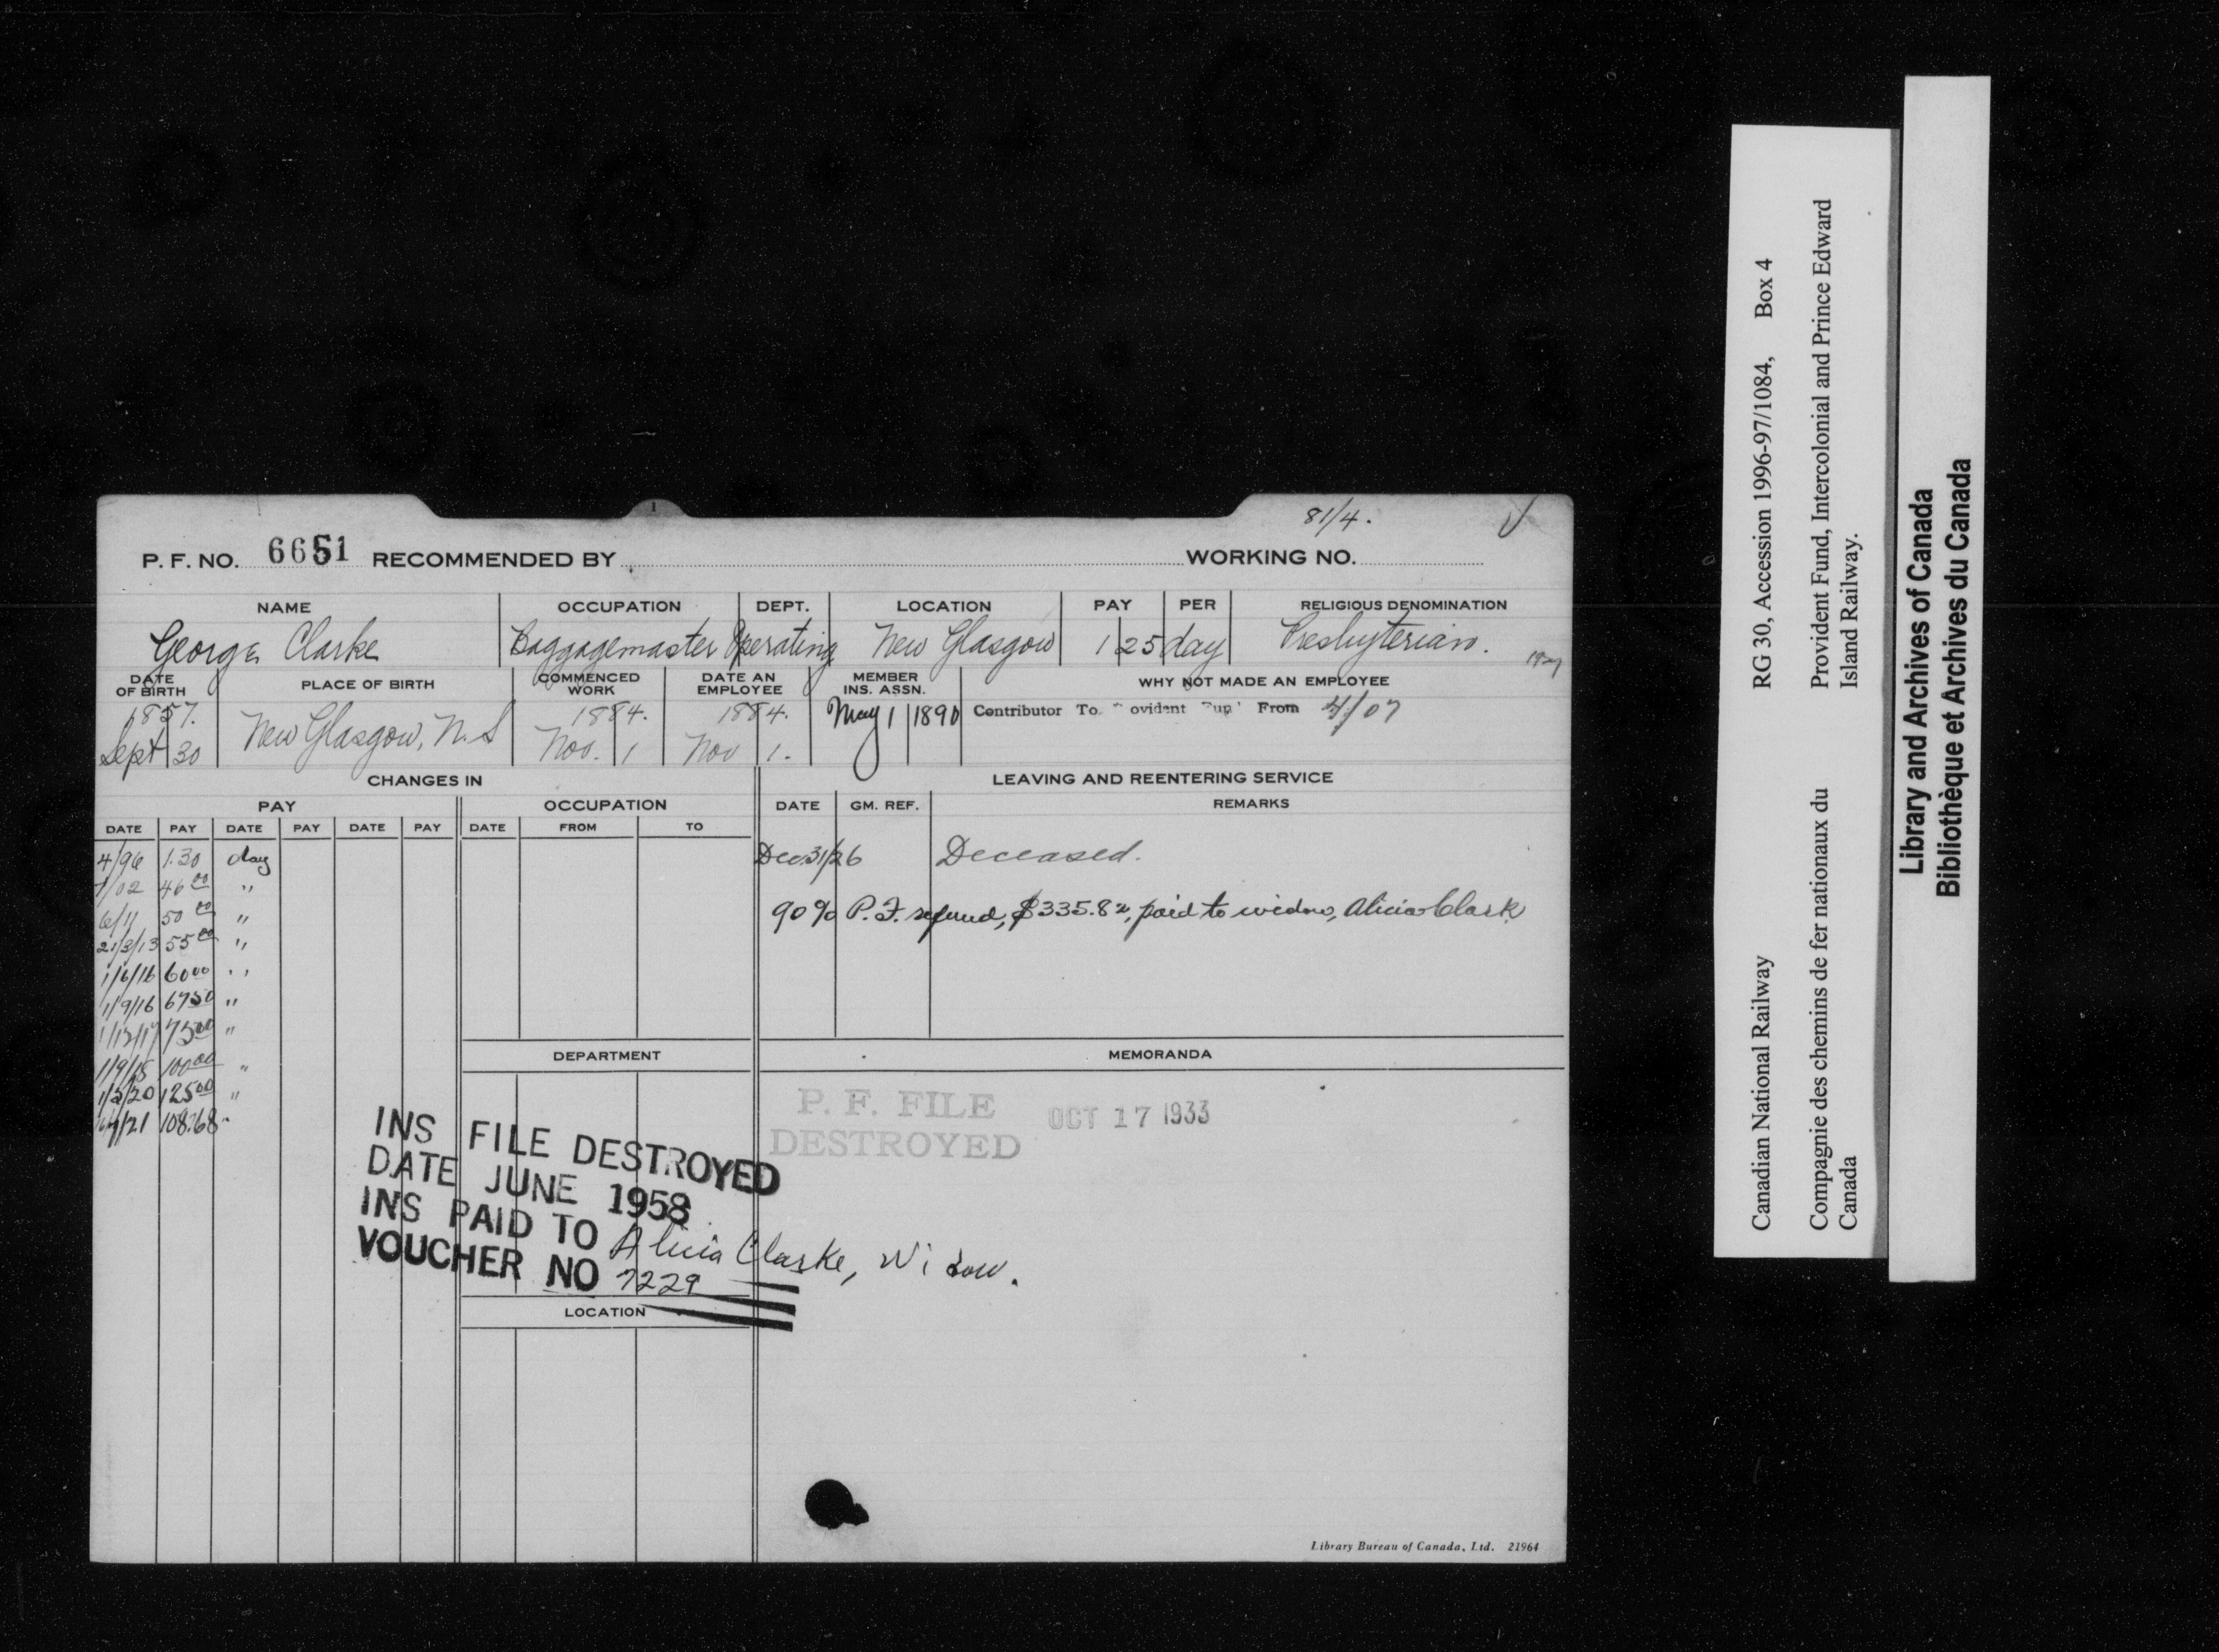 81/4.
P. F. NO. 6651 RECOMMENDED BY WORKING NO.
NAME OCCUPATION DEPT. LOCATION PAY PER RELIGIOUS DENOMINATION
George Clarke Baggagemaster Operating New Glasgow 1 25 day Presbyterian.
DATE OF BIRTH PLACE OF BIRTH COMMENCED WORK DATE AN EMPLOYEE MEMBER INS. ASSN. WHY NOT MADE AN EMPLOYEE
1857. Sept 30 New Glasgow, N.S 1884. Nov. 1 1884. Nov 1. May 1 1890 Contributor To ovident From 4/07
CHANGES IN LEAVING AND REENTERING SERVICE
PAY OCCUPATION DATE GM. REF. REMARKS
DATE PAY DATE PAY DATE PAY DATE FROM TO
4/96 1.30 day
/02 46 00 "
6/11 50 00 "
21/3/13 55 00 "
1/6/16 60 00 "
1/9/16 67 50 "
1/12/17 75 00 "
1/9/18 100 00 "
1/5/20 125 00 "
/21 108.68
Dec. 31/26 Deceased.
90% P.F. refund, $335.82, paid to widow, Alicia Clark
DEPARTMENT MEMORANDA
P. F. FILE DESTROYED OCT 17 1933
INS FILE DESTROYED
DATE JUNE 1958
INS PAID TO Alicia Clarke, Widow.
VOUCHER NO 7229
LOCATION
Library Bureau of Canada, Ltd. 21964
Canadian National Railway RG 30, Accession 1996-97/1084, Box 4
Compagnie des chemins de fer nationaux du Canada
Provident Fund, Intercolonial and Prince Edward Island Railway.
Library and Archives of Canada
Bibliothèque et Archives du Canada